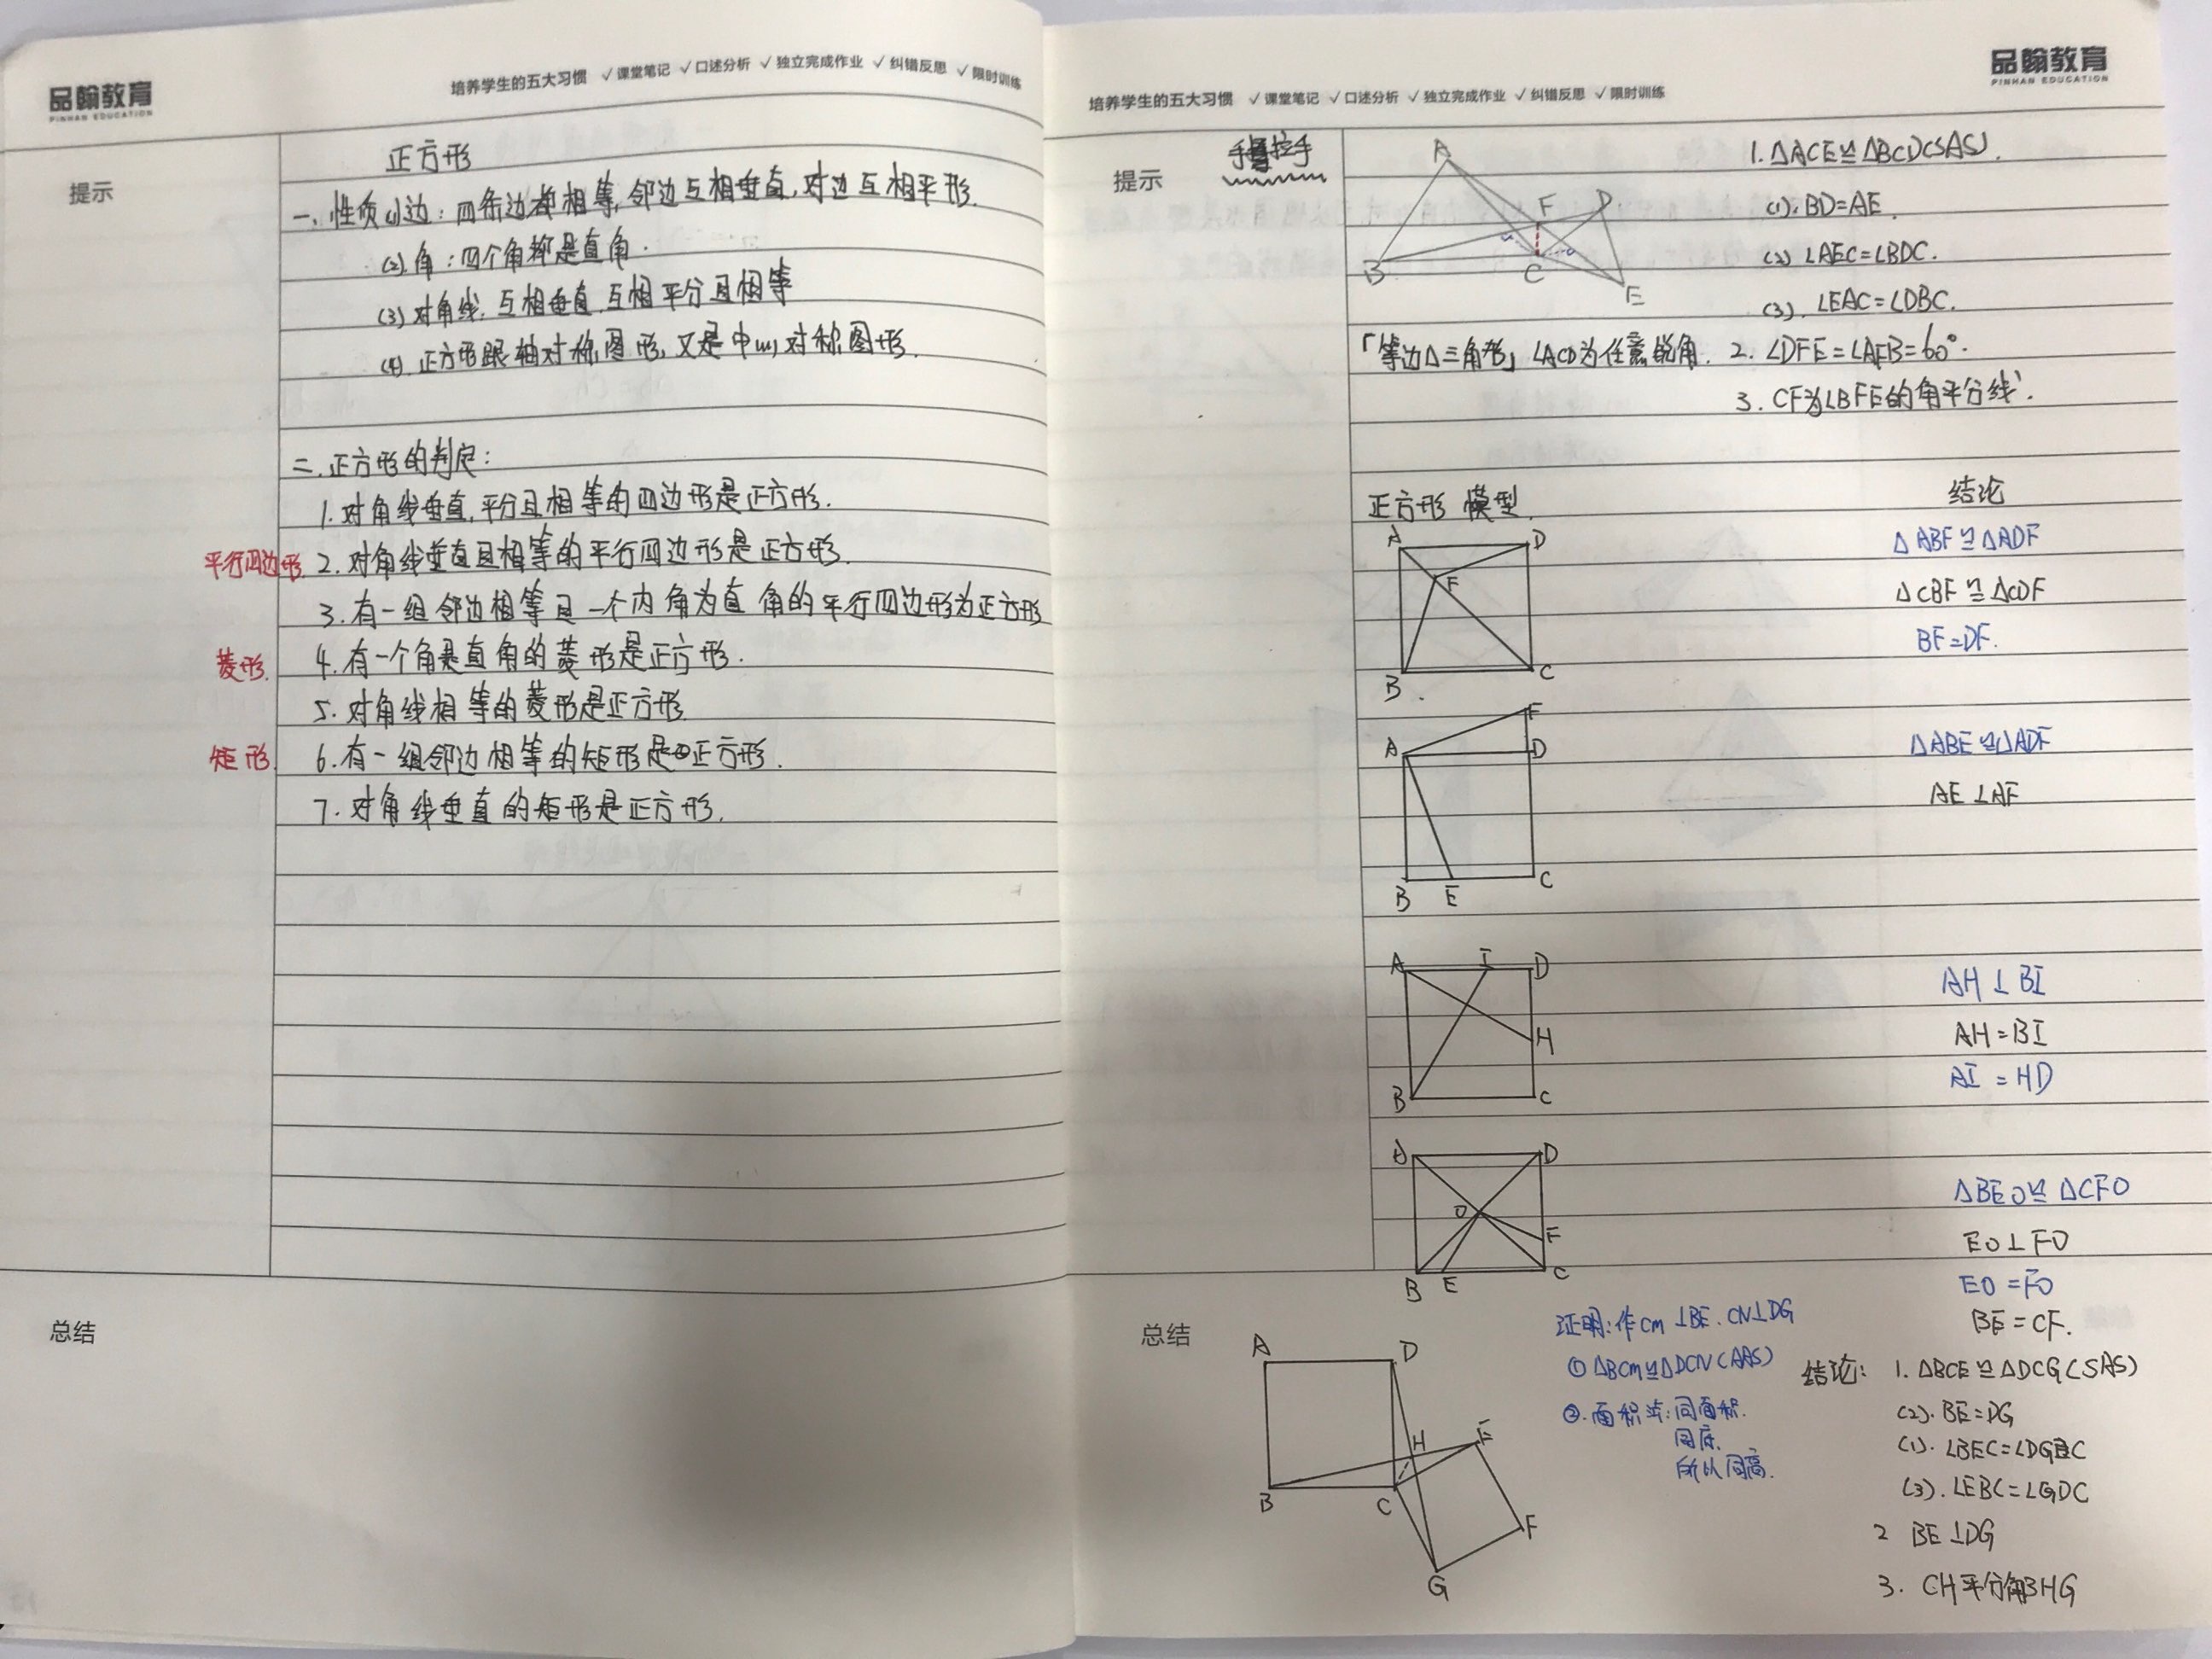 品翰教育
PINHAN EDUCATION
培养学生的五大习惯 √课堂笔记 √口述分析 √独立完成作业 √纠错反思 √限时训练
提示
正方形
一、性质(1)边：四条边都相等,邻边互相垂直,对边互相平形.
(2).角：四个角都是直角.
(3)对角线,互相垂直,互相平分且相等
(4).正方形跟轴对称图形,又是中心对称图形.
二.正方形的判定：
1.对角线垂直,平分且相等的四边形是正方形.
平行四边形. 2.对角线垂直且相等的平行四边形是正方形.
3.有一组邻边相等且一个内角为直角的平行四边形为正方形
菱形. 4.有一个角是直角的菱形是正方形.
5.对角线相等的菱形是正方形.
矩形. 6.有一组邻边相等的矩形是正方形.
7.对角线垂直的矩形是正方形.
总结
品翰教育
PINHAN EDUCATION
培养学生的五大习惯 √课堂笔记 √口述分析 √独立完成作业 √纠错反思 √限时训练
提示
手拉手
A
F D
B C E
1.△ACE≌△BCD(SAS).
(1).BD=AE.
(2)∠AEC=∠BDC.
(3).∠EAC=∠DBC.
「等边△三角形」∠ACD为任意锐角. 2.∠DFE=∠AFB=60°.
3.CF为∠BFE的角平分线.
正方形 模型. 结论
A D
F
B C
△ABF≌△ADF
△CBF≌△CDF
BF=DF.
F
A D
B E C
△ABE≌△ADF
AE⊥AF
A I D
H
B C
AH⊥BI
AH=BI
AI=HD
A D
O
F
B E C
△BEO≌△CFO
EO⊥FO
EO=FO
BE=CF.
总结
A D
H E
B C
F
G
证明：作CM⊥BE.CN⊥DG
①△BCM≌△DCN(AAS)
②.面积法：同面积.
同底.
所以同高.
结论：1.△BCE≌△DCG(SAS)
(2).BE=DG
(1).∠BEC=∠DGC
(3).∠EBC=∠GDC
2 BE⊥DG
3.CH平分角BHG